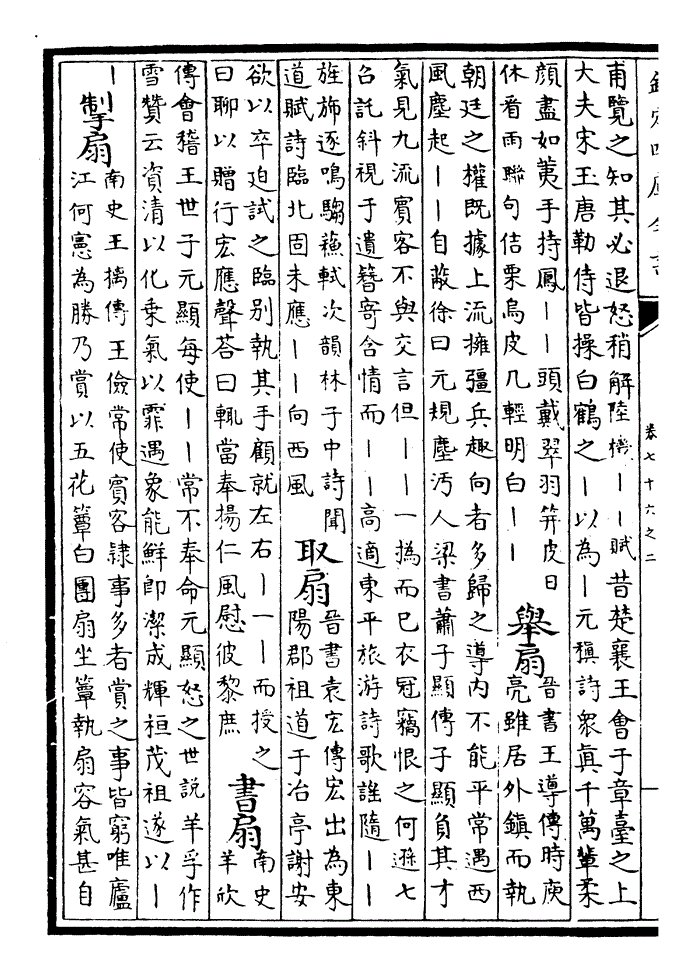 欽定四庫全書
卷七十六之二
甫覽之知其必退怒稍解陸機丨丨賦昔楚襄王會于章臺之上
大夫宋玉唐勒侍皆操白鶴之丨以為丨元稹詩衆真千萬輩柔
顔盡如荑手持鳳丨丨頭戴翠羽笄皮日
休看雨聯句佶栗烏皮几輕明白丨丨
舉扇
晉書王導傳時庾
亮雖居外鎮而執
朝廷之權既據上流擁彊兵趣向者多歸之導内不能平常遇西
風塵起丨丨自蔽徐曰元規塵汚人梁書蕭子顯傳子顯負其才
氣見九流賓客不與交言但丨丨一撝而已衣冠竊恨之何遜七
召託斜視于遺簪寄含情而丨丨高適東平旅游詩歌謡隨丨丨
旌斾逐鳴騶蘓軾次韻林子中詩聞
道賦詩臨北固未應丨丨向西風
取扇
晉書袁宏傳宏出為東
陽郡祖道于冶亭謝安
欲以卒迫試之臨别執其手顧就左右丨一丨而授之
曰聊以贈行宏應聲荅曰輒當奉揚仁風慰彼黎庶
書扇
南史
羊欣
傳會稽王世子元顯每使丨丨常不奉命元顯怒之世説羊孚作
雪贊云資清以化乗氣以霏遇象能鮮即潔成輝桓茂祖遂以丨
丨
掣扇
南史王摛傳王儉常使賓客隸事多者賞之事皆窮唯廬
江何憲為勝乃賞以五花簟白團扇坐簟執扇容氣甚自